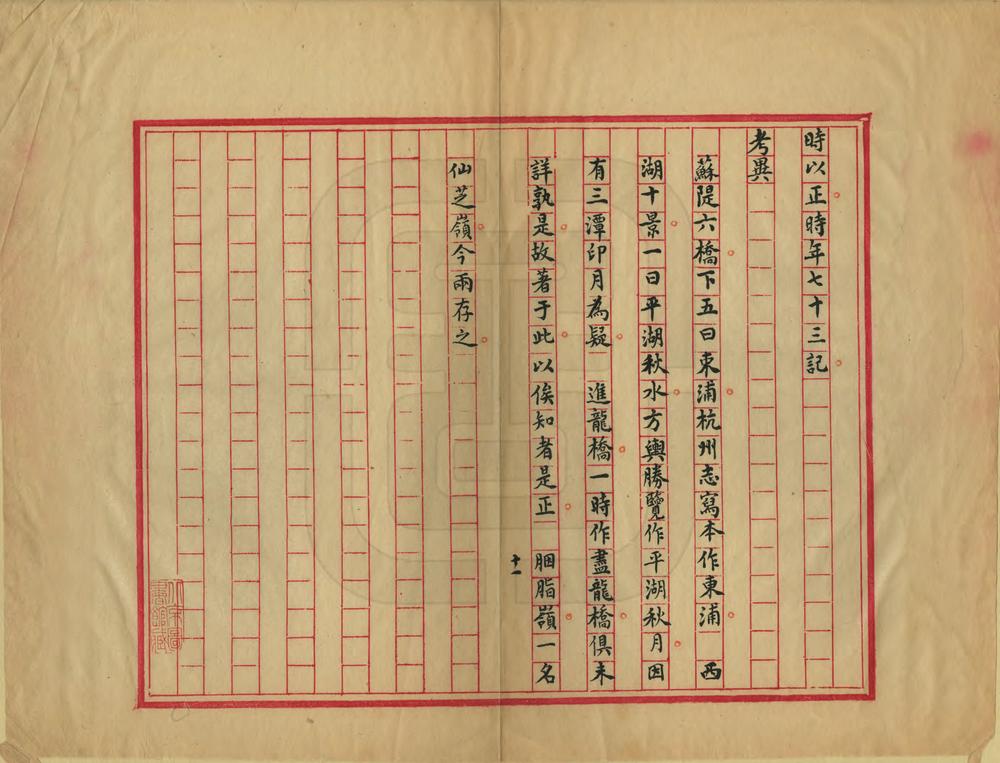 時以正時年七十三記
考異
蘇隄六橋下五曰東浦杭州志寫本作東浦　西
湖十景一曰平湖秋水方輿勝覽作平湖秋月因
有三潭印月為疑　進龍橋一時作盡龍橋俱未
詳孰是故著于此以俟知者是正　胭脂嶺一名
十一
仙芝嶺今兩存之